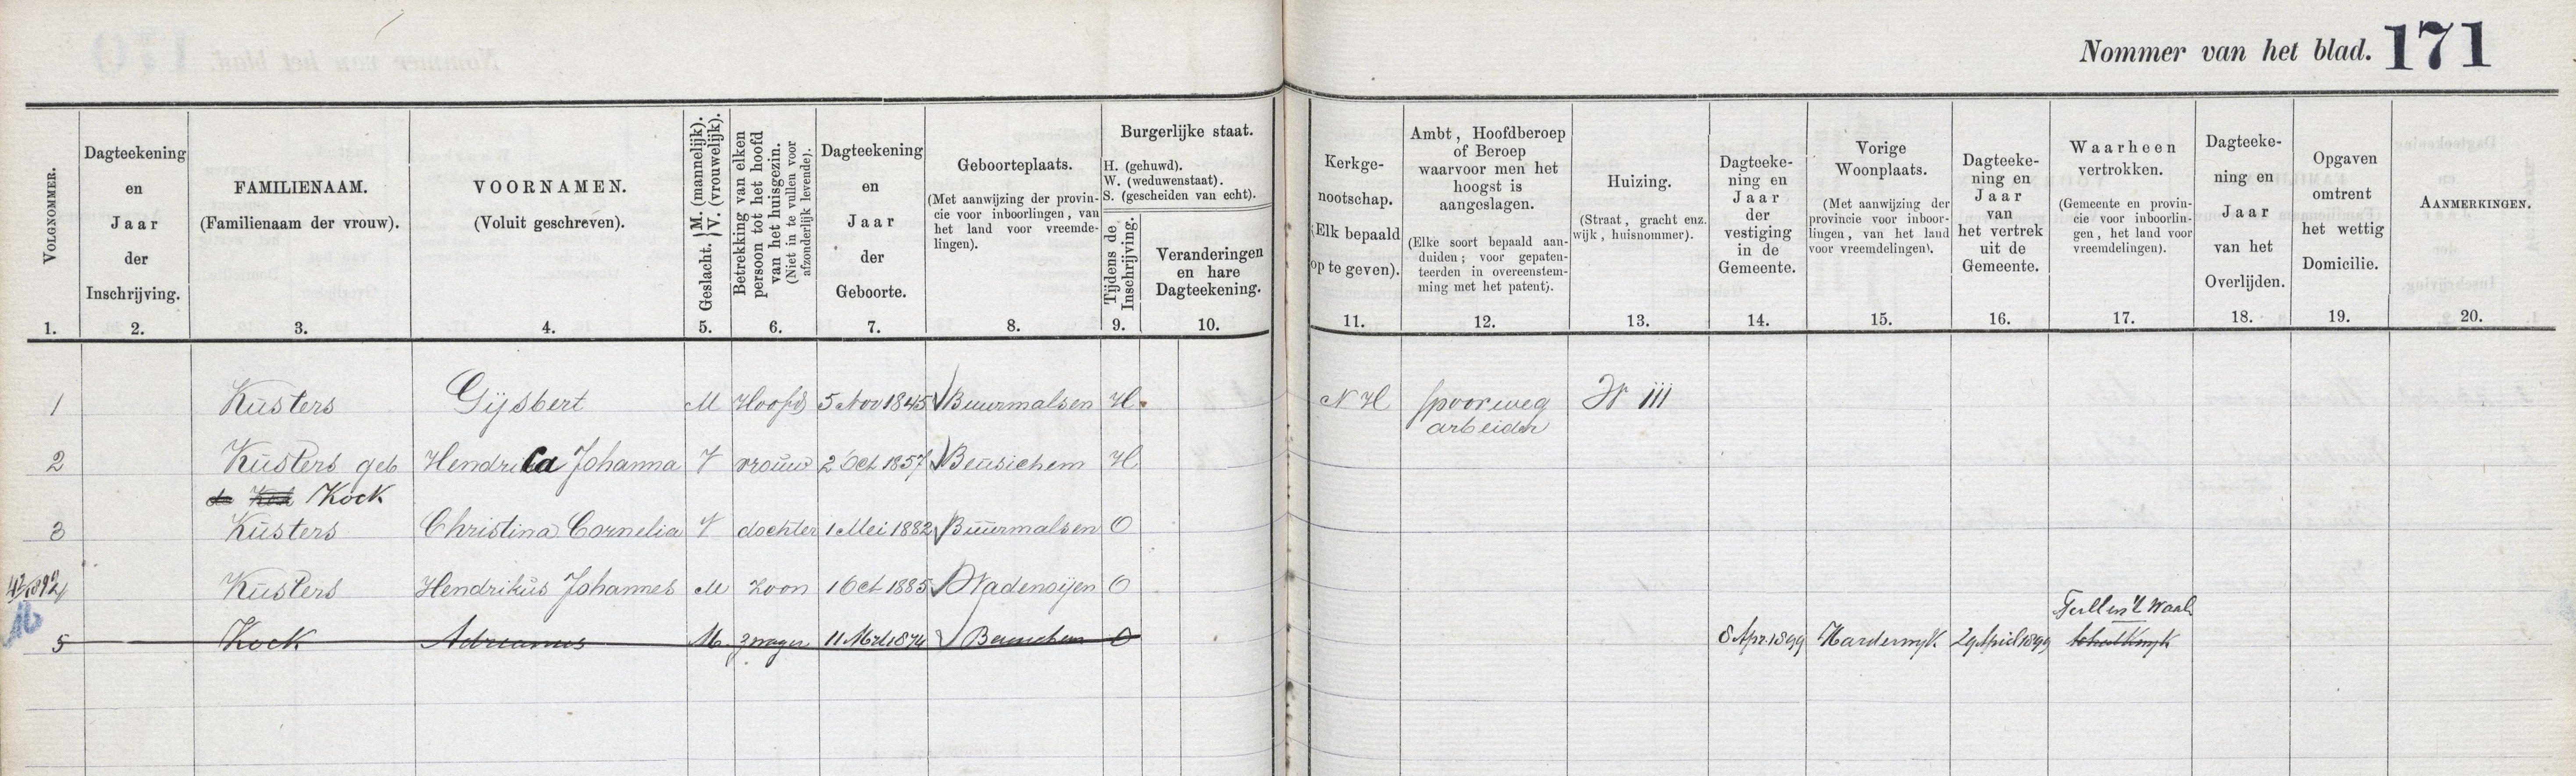 Nommer van het blad. 171
VOLGNOMMER.
1.
Dagteekening
en
Jaar
der
Inschrijving.
2.
FAMILIENAAM.
(Familienaam der vrouw).
3.
VOORNAMEN.
(Voluit geschreven).
4.
Geslacht. {M. (mannelijk). V. (vrouwelijk).
5.
Betrekking van elken
persoon tot het hoofd
van het huisgezin.
(Niet in te vullen voor
afzonderlijk levende).
6.
Dagteekening
en
Jaar
der
Geboorte.
7.
Geboorteplaats.
(Met aanwijzing der provin-
cie voor inboorlingen, van
het land voor vreemde-
lingen).
8.
Burgerlijke staat.
H. (gehuwd).
W. (weduwenstaat).
S. (gescheiden van echt).
Tijdens de
Inschrijving.
9.
Veranderingen
en hare
Dagteekening.
10.
Kerkge-
nootschap.
(Elk bepaald
op te geven).
11.
Ambt, Hoofdberoep
of Beroep
waarvoor men het
hoogst is
aangeslagen.
(Elke soort bepaald aan-
duiden; voor gepaten-
teerden in overeenstem-
ming met het patent).
12.
Huizing.
(Straat, gracht enz.
wijk, huisnommer).
13.
Dagteeke-
ning en
Jaar
der
vestiging
in de
Gemeente.
14.
Vorige
Woonplaats.
(Met aanwijzing der
provincie voor inboor-
lingen, van het land
voor vreemdelingen).
15.
Dagteeke-
ning en
Jaar
van
het vertrek
uit de
Gemeente.
16.
Waarheen
vertrokken.
(Gemeente en provin-
cie voor inboorlin-
gen, het land voor
vreemdelingen).
17.
Dagteeke-
ning en
Jaar
van het
Overlijden.
18.
Opgaven
omtrent
het wettig
Domicilie.
19.
AANMERKINGEN.
20.
1 Kusters Gijsbert M Hoofd 5 Nov 1845 Buurmalsen H. N H spoorweg
arbeider
2 Kusters geb Hendrica Johanna V vrouw 2 Oct 1857 Beusichem H
de Kock
3 Kusters Christina Cornelia V dochter 1 Mei 1882 Buurmalsen O
4 Kusters Hendrikus Johannes M Zoon 1 Oct 1885 Wadenoijen O
5 Kock Adrianus M. zwager 11 1874 Beusichem O 8 Apr. 1899 Harderwijk 29 April 1899 Schalkwijk